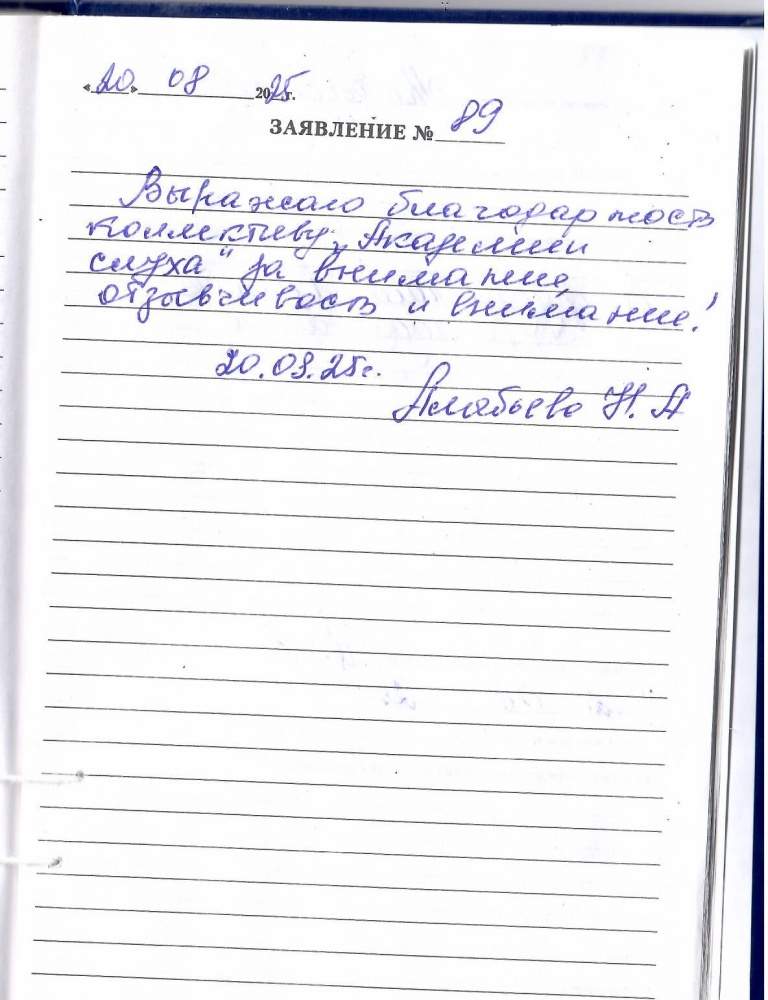 «20» 08 2025г.
ЗАЯВЛЕНИЕ № 89
Выражаю благодарность
коллективу „Академии
слуха“ за внимание,
отзывчивость и внимание!
20.08.25г.
Алябьева Н. А